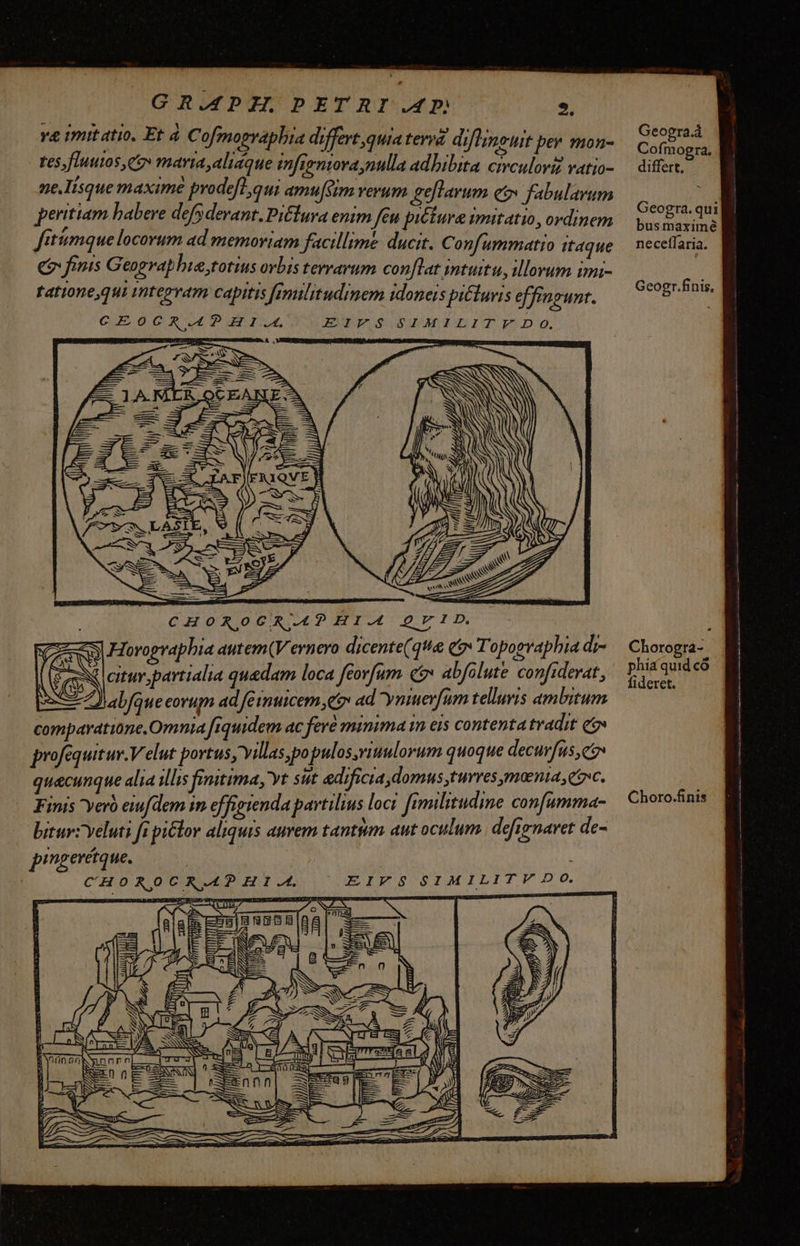 GRAPH. PETRI AP. 2.
ræ imitatio. Et à Cosmographia differt, quia terrā distinguit per mon-
tes, fluuios, & maria, aliaque insigniora, nulla adhibita circulorū ratio-
ne. Iisque maximè prodest, qui amussim rerum gestarum & fabularum
peritiam habere desyderant. Pictura enim seu picturæ imitatio, ordinem
sitúmque locorum ad memoriam facillimè ducit. Consummatio itaque
& finis Geographiæ, totius orbis terrarum constat intuitu, illorum imi-
tatione, qui integram capitis similitudinem idoneis picturis effingunt.
Geogra.à
Cosmogra.
differt.
Geogra. qui
bus maximè
necessaria.
Geogr. finis.
GEOGRAPHIA. EIVS SIMILITVDO.
LA MER OCEANE.
LAFFRIQVE
LASIE,
EVROPE
CHOROGRAPHIA QVID.
Horographia autem (Vernero dicente(quæ & Topographia di-
citur, partialia quædam loca seorsum & absolute considerat,
absque eorum ad seinuicem, & ad vniuersum telluris ambitum
comparatione. Omnia siquidem ac ferè minima in eis contenta tradit &
prosequitur. Velut portus, villas, populos, riuulorum quoque decursus, &
quæcunque alia illis finitima, vt sūt ædificia, domus, turres, mœnia, &c.
Finis verò eiusdem in effigienda partilius loci similitudine consumma-
bitur: veluti si pictor aliquis aurem tantùm aut oculum designaret de-
pingerétque.
Chorogra-
phia quid cō
sideret.
Choro. finis
CHOROGRAPHIA. EIVS SIMILITVDO.